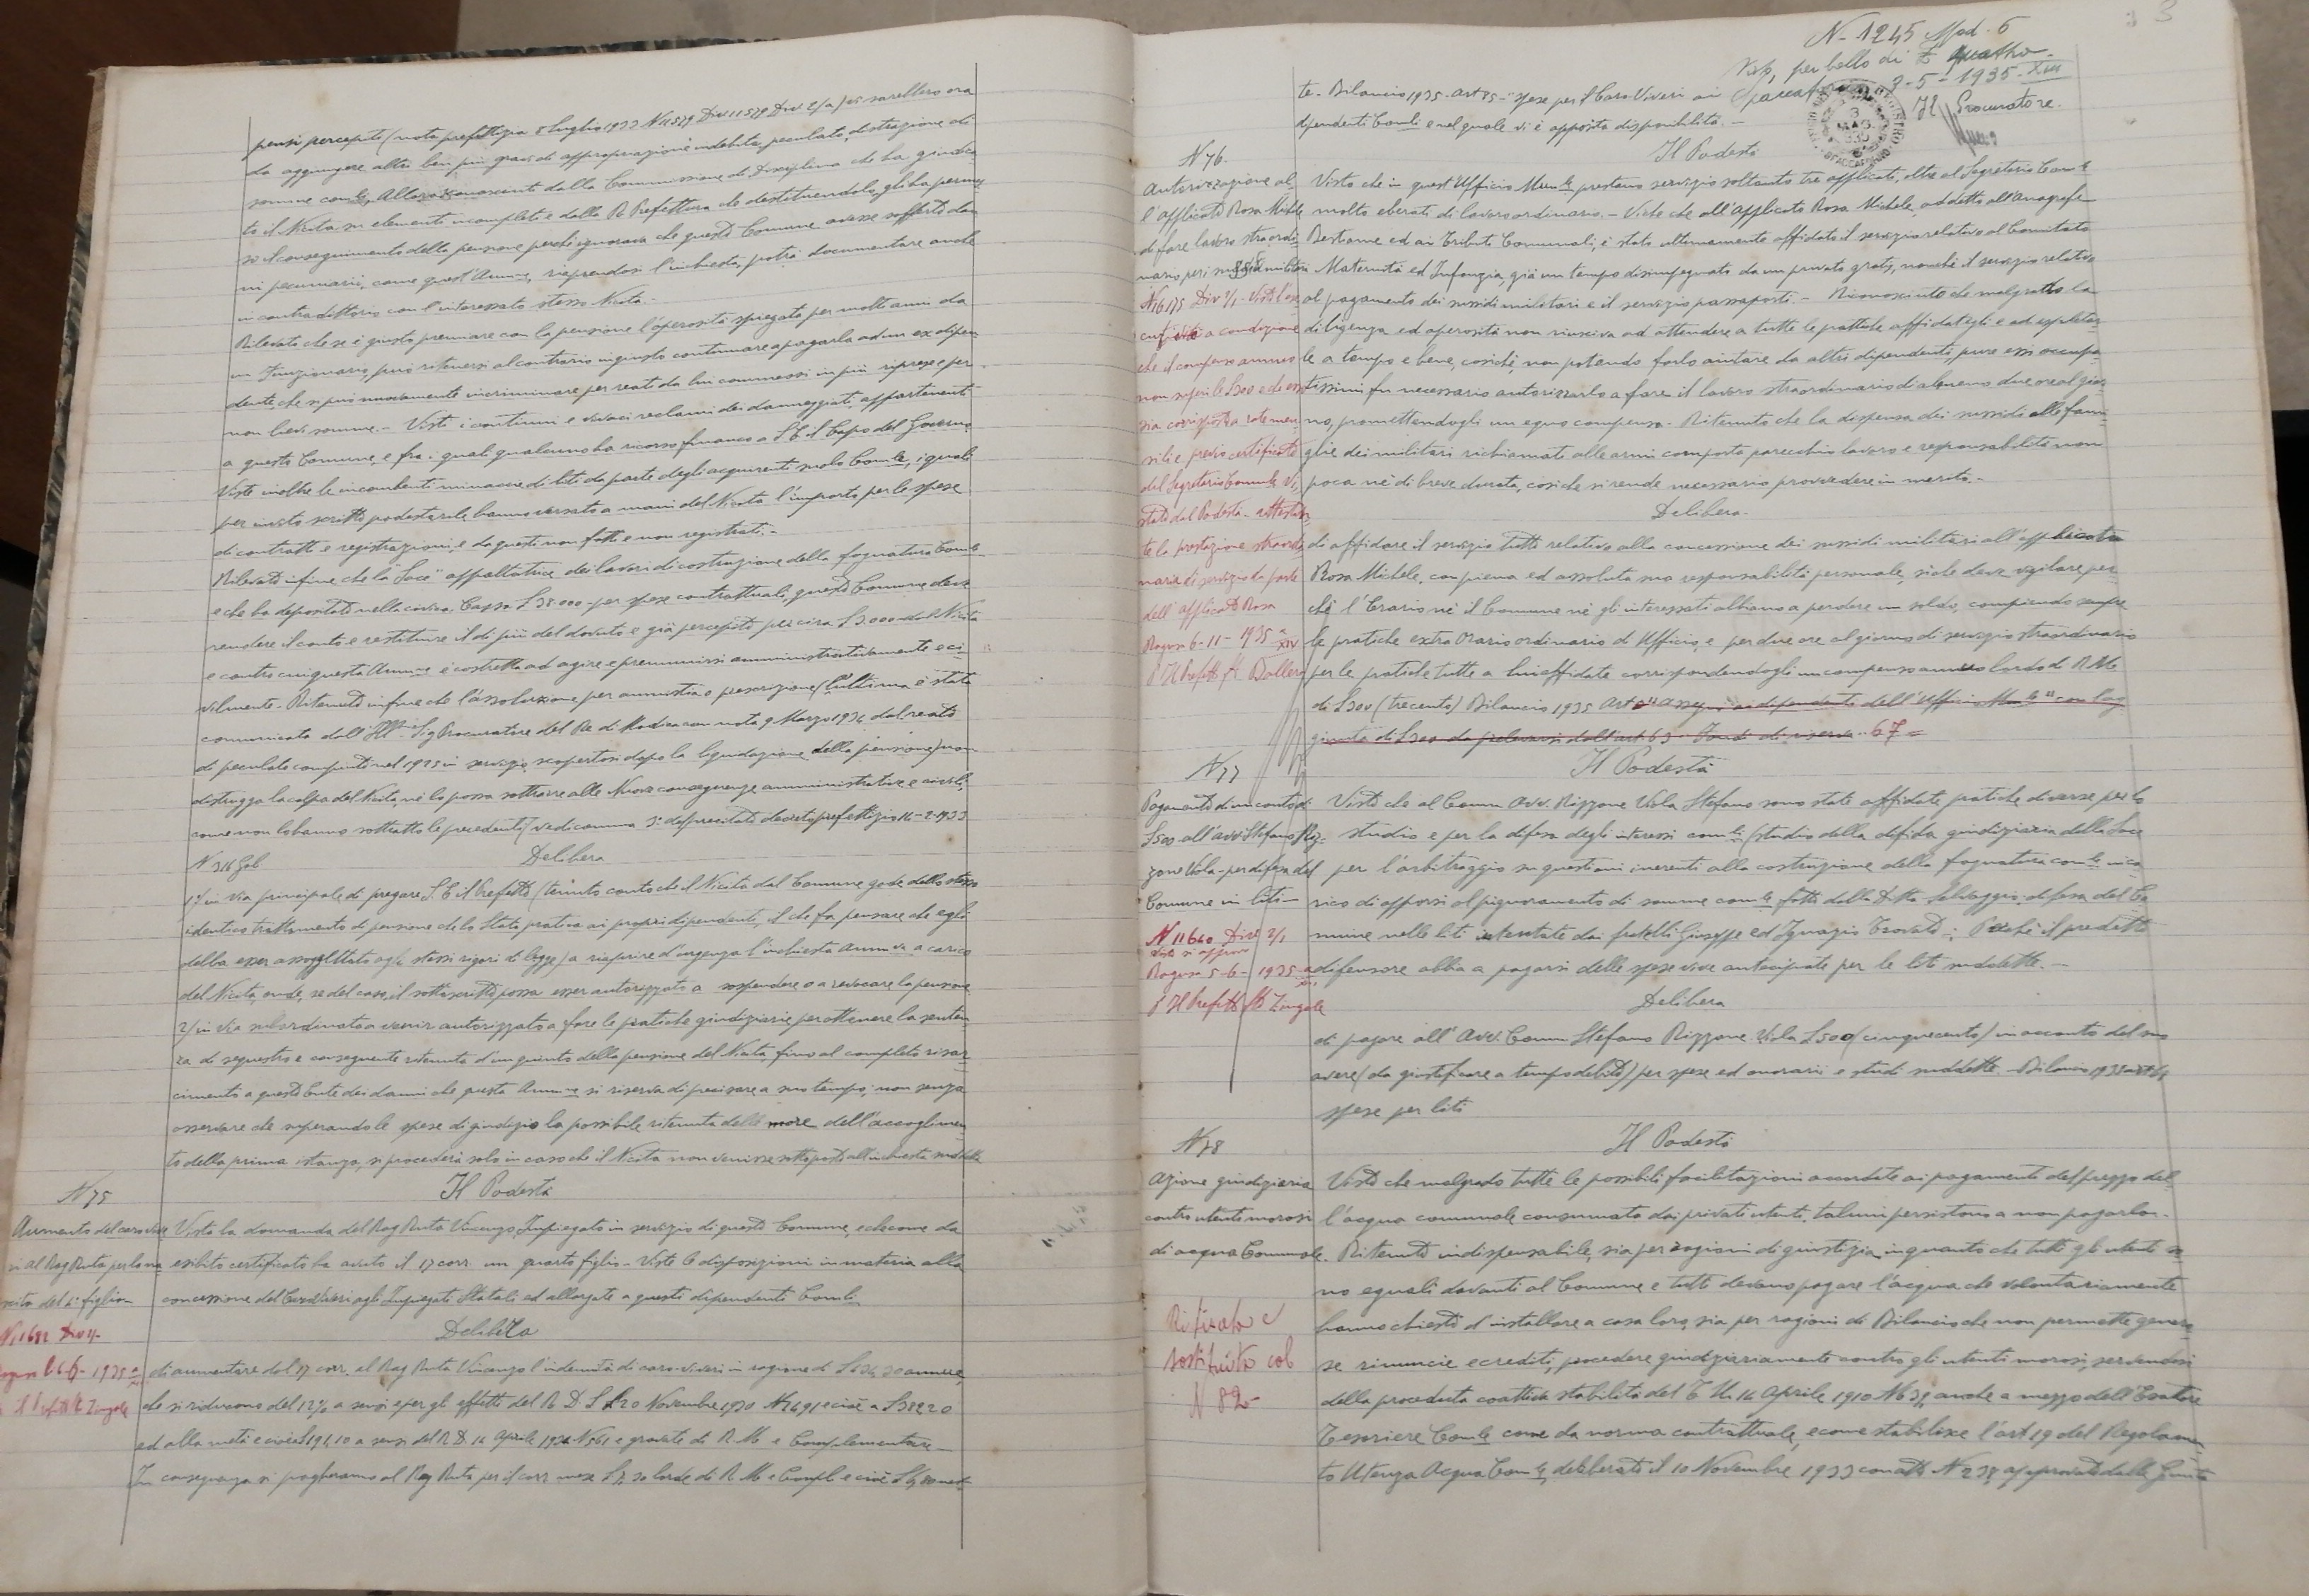 pensi percepiti (nota prefettizia 8 luglio 1933 N 11579 Div 2/a) vi sarebbero ora
da aggiungere altri ben più gravi di appropriazione indebita, peculato, distrazione di
somme com/li, allora sconosciuti dalla Commissione di Disciplina che ha giudica
to il Nicita su elementi incompleti e dalla R. Prefettura che destituendolo, gli ha permes
so il conseguimento della pensione perché ignorava che questo Comune avesse sofferto dan
ni pecuniarii, come quest'Amm/ne, riaprendosi l'inchiesta, potrà documentare anche
in contradittorio con l'interessato stesso Nicita.-
Rilevato che se è giusto premiare con la pensione l'operosità spiegata per molti anni da
un Funzionario, può ritenersi al contrario ingiusto continuare a pagarla ad un ex dipen
dente, che si può nuovamente incriminare per reati da lui commessi in più riprese e per
non lievi somme.- Visti i continui e vivaci reclami dei danneggiati, appartenenti
a questo Comune, e fra i quali qualcuno ha ricorso financo a S.E. il Capo del Governo
Viste inoltre le incombenti minaccie di liti da parte degli acquirenti suolo Com/le, i quali
per invito scritto podestarile, hanno versato a mani del Nicita l'importo per le spese
di contratti e registrazioni, e da questi non fatti e non registrati.-
Rilevato infine che la "Sace" appaltatrice dei lavori di costruzione della fognatura Com/le
e che ha depositato nella civica Cassa £ 38.000 - per spese contrattuali, questo Comune deve
rendere il conto e restituire il di più del dovuto e già percepito per circa £ 3.000 dal Nicita
e contro cui questa Amm/ne è costretta ad agire e premunirsi amministrativamente e ci
vilmente - Ritenuto infine che l'assoluzione per amnistia o prescrizione (l'ultima è stata
comunicata dall'Ill/mo Sig Procuratore del Re di Modica con nota 9 Marzo 1934 dal reato
di peculato compiuto nel 1925 in servizio, scopertosi dopo la liquidazione della pensione) non
distrugga la colpa del Nicita, né lo possa sottrarre alle Nuove conseguenze amministrative e civili,
come non lo hanno sottratto le precedenti (vedi comma 3° del precitato decreto prefettizio 16-2-1933
N 316 Gab.
Delibera
1°/ in via principale di pregare S.E. il Prefetto (tenuto conto che il Nicita dal Comune gode dello stesso
identico trattamento di pensione che lo Stato pratica ai propri dipendenti, il che fa pensare che egli
debba esser assoggettato agli stessi rigori di legge) a riaprire d'urgenza l'inchiesta Amm/va a carico
del Nicita, onde, se del caso, il sottoscritto possa esser autorizzato a sospendere o a revocare la pensione
2/ in via subordinata a venir autorizzato a fare le pratiche giudiziarie per ottenere la senten
za di sequestro e conseguente ritenuta d'un quinto della pensione del Nicita, fino al completo risar
cimento a questo Ente dei danni che questa Amm/ne si riserva di precisare a suo tempo, non senza
osservare che superando le spese di giudizio la possibile ritenuta delle more dell'accoglimen
to della prima istanza, si procederà solo in caso che il Nicita non venisse sottoposto all'inchiesta suddetta
N 75
Il Podestà
Aumento del caro vive
ri al Rag Ruta per la na
scita del 4° figlio -
N 11682 Div 4-
Ragusa li 6-6-1935
Il Prefetto Zingale
Vista la domanda del Rag Ruta Vincenzo, Impiegato in servizio di questo Comune, e che come da
esibito certificato ha avuto il 17 corr. un quarto figlio - Viste le disposizioni in materia alla
concessione del Caro Viveri agli Impiegati Statali ed allargate a questi dipendenti Com/li
Delibera
di aumentare dal 17 corr. al Rag Ruta Vincenzo l'indennità di caro-viveri in ragione di £ 434,30 annue,
che si riducono del 12% a sensi e per gli effetti del R.D.L. 20 Novembre 1930 N 1491 e cioè a £ 382,20
ed alla metà e cioè £ 191,10 a sensi del R.D. 14 Aprile 1934 N 561 e gravate di R.M. e Complementare -
In conseguenza si pagheranno al Rag Ruta per il corr. mese £ 7,50 lorde di R.M. e Compl. e cioè £ 6,80 net-
N- 1245 Mod. 6
Visto, per bollo di £ quattro -
Spaccaforno 3-5-1935-XIII
Il Procuratore.
te - Bilancio 1935 - art 85 - "Spese per il Caro Viveri ai
dipendenti Com/li e nel quale vi è apposita disponibilità. -
N 76.
Il Podestà
Autorizzazione al
l'applicato Rosa Michele
di fare lavoro straordi
nario per i sussidi militari
N 16175 Div 2/1 - Visto l'ese
cutività a condizione
che il compenso annuo
non superi le £300 e che esso
sia corrisposto a rate men
sili e previo certificato
del Segretario Comunale Vi
stato dal Podestà - attestan
te la prestazione straordi
naria di servizio da parte
dell'applicato Rosa
Ragusa 6-11-1935 XIV
p Il Prefetto
Visto che in quest'Ufficio Mun/le prestano servizio soltanto tre applicati, oltre al Segretario Com/le
molto oberati di lavoro ordinario. - Visto che all'Applicato Rosa Michele, addetto all'Anagrafe
Bestiame ed ai Tributi Comunali, è stato ultimamente affidato il servizio relativo al Comitato
Maternità ed Infanzia, già un tempo disimpegnato da un privato gratis, nonché il servizio relativo
al pagamento dei sussidi militari e il servizio passaporti. - Riconosciuto che malgrado la
diligenza ed operosità non riusciva ad attendere a tutte le pratiche affidategli e ad espletar
le a tempo e bene, cosiché, non potendo farlo aiutare da altri dipendenti, pure essi occupa
tissimi fu necessario autorizzarlo a fare il lavoro straordinario di almeno due ore al gior
no, promettendogli un equo compenso - Ritenuto che la dispensa dei sussidi alle fami
glie dei militari richiamati alle armi comporta parecchio lavoro e responsabilità non
poca né di breve durata, cosiche si rende necessario provvedere in merito. -
Delibera -
di affidare il servizio tutto relativo alla concessione dei sussidi militari all'applicato
Rosa Michele, con piena ed assoluta sua responsabilità personale, sicché deve vigilare per
ché l'Erario né il Comune né gli interessati abbiano a perdere un soldo, compiendo sempre
le pratiche extra Orario ordinario di Ufficio, e per due ore al giorno di servizio straordinario
per le pratiche tutte a lui affidate corrispondendogli un compenso annuo lordo di R.M.
di £300 (trecento) Bilancio 1935 Art 3 "Assegni ai dipendenti dell'Ufficio Mun/le" con l'ag
giunta di £300 da prelevarsi dall'art 63 Fondo di riserva - 67 =
N 77
Il Podestà
Pagamento di un conto di
£500 all'avv. Stefano Riz
zone Viola - per difesa del
Comune in liti -
N 11660 Div 2/1
Visto si approva
Ragusa 5-6-1935
p Il Prefetto Zingale
Visto che al Comm Avv. Rizzone Viola Stefano sono state affidate pratiche diverse per lo
studio e per la difesa degli interessi com/li (studio della difesa giudiziaria della Sace
per l'arbitraggio su questioni inerenti alla costruzione della fognatura com/le, inca
rico di opporsi al pignoramento di somme com/li fatto dalla Ditta Selvaggio, difesa del Co
mune nelle liti intentate dai fratelli Giuseppe ed Ignazio Trovato -; Poiché il predetto
difensore abbia a pagarsi delle spese vive anticipate per le liti suddette. -
Delibera
di pagare all'Avv. Comm Stefano Rizzone Viola £500 (cinquecento) in acconto del suo
avere (da giustificare a tempo debito) per spese ed onorarii e studi suddette - Bilancio 1935 art 64
spese per liti
N 78
Il Podestà
Azione giudiziaria
contro utenti morosi
di acqua Comunale.
Ritirato e
sostituito col
N 82-
Visto che malgrado tutte le possibili facilitazioni accordate ai pagamenti del prezzo del
l'acqua comunale consumata dai privati utenti, taluni persistono a non pagarla. -
Ritenuto indispensabile, sia per ragioni di giustizia, in quanto che tutti gli utenti so
no eguali davanti al Comune e tutti devono pagare l'acqua che volontariamente
hanno chiesto d'installare a casa loro, sia per ragioni di Bilancio che non permette genero
se rinuncie a crediti, procedere giudiziariamente contro gli utenti morosi, servendosi
della procedura coattiva stabilita del T.U. 14 Aprile 1910 N 639, anche a mezzo dell'Esattore
Tesoriere Com/le come da norma contrattuale, e come stabilisce l'art 19 del Regolamen
to Utenza Acqua Com/le, deliberato il 10 Novembre 1933 con atto N 238, approvato dalla Giunta